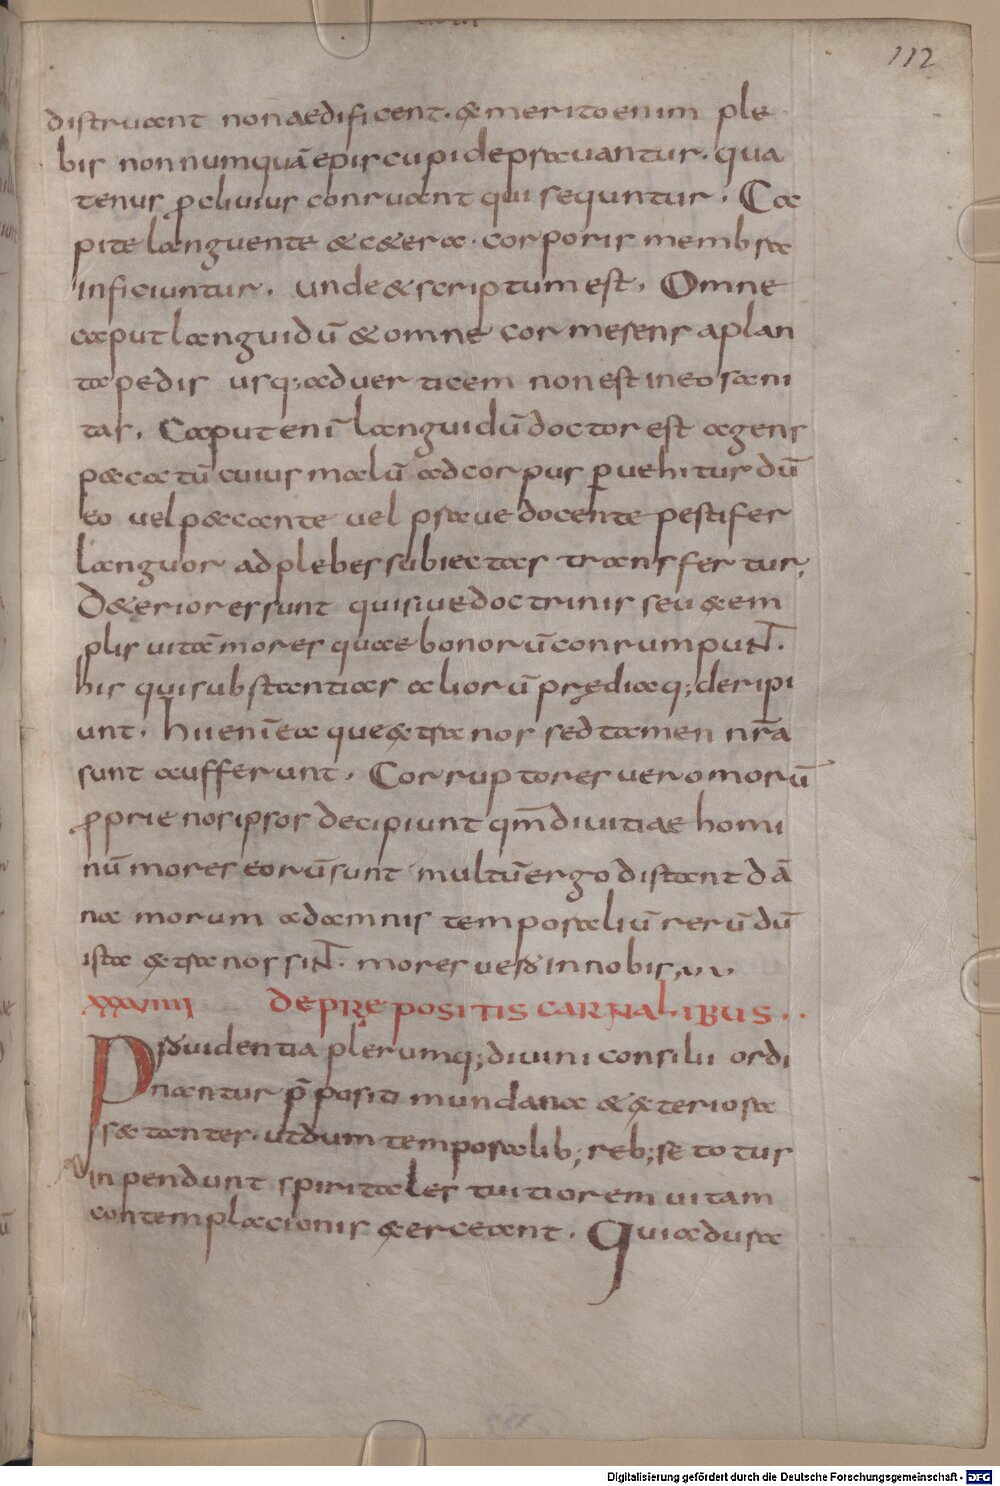 112
distruant non aedificent. & merito enim ple
bis nonnumquā episcupi deprauantur. qua
tenus ꝓclivius conruant qui sequntur. Ca
pite languente & c&era. corporis membra
inficiuntur. unde & scriptum est. Omne
caput languidū & omne cor merens a plan
ta pedis usq; ad uerticem non est in eo sani
tas. Caput enī languidū doctor est agens
peccatū cuius malū ad corpus ꝑuehitur dū
eo uel peccante uel praue docente pestifer
languor ad plebes subiectas transfertur,
D&eriores sunt qui siue doctrinis seu exem
plis uitā mores quae bonorū conrumpuNT.
his qui substantias aliorū prędiaq; deripi
unt. hii enī ea que extra nos sed tamen nr̄a
sunt aufferunt. Corruptores uero morū
ꝓprie nos ipsos decipiunt qm̄ diuitiae homi
nū mores eorū sunt multū ergo distant dā
na morum a damnis temporaliū rerū dū
ista extra nos siNT. mores uero in nobis,,,
XXXVIIII DE PRĘPOSITIS CARNALIBUS..
Prouidentia plerumq; diuini consilii ordi
nantur p̄positi mundana & exteriora
sectanter. ut dum temporalib; reb; se totus
inpendunt spiritales tuitiorem uitam
contemplacionis exerceant. Qui ad usa
Digitalisierung gefördert durch die Deutsche Forschungsgemeinschaft - DFG